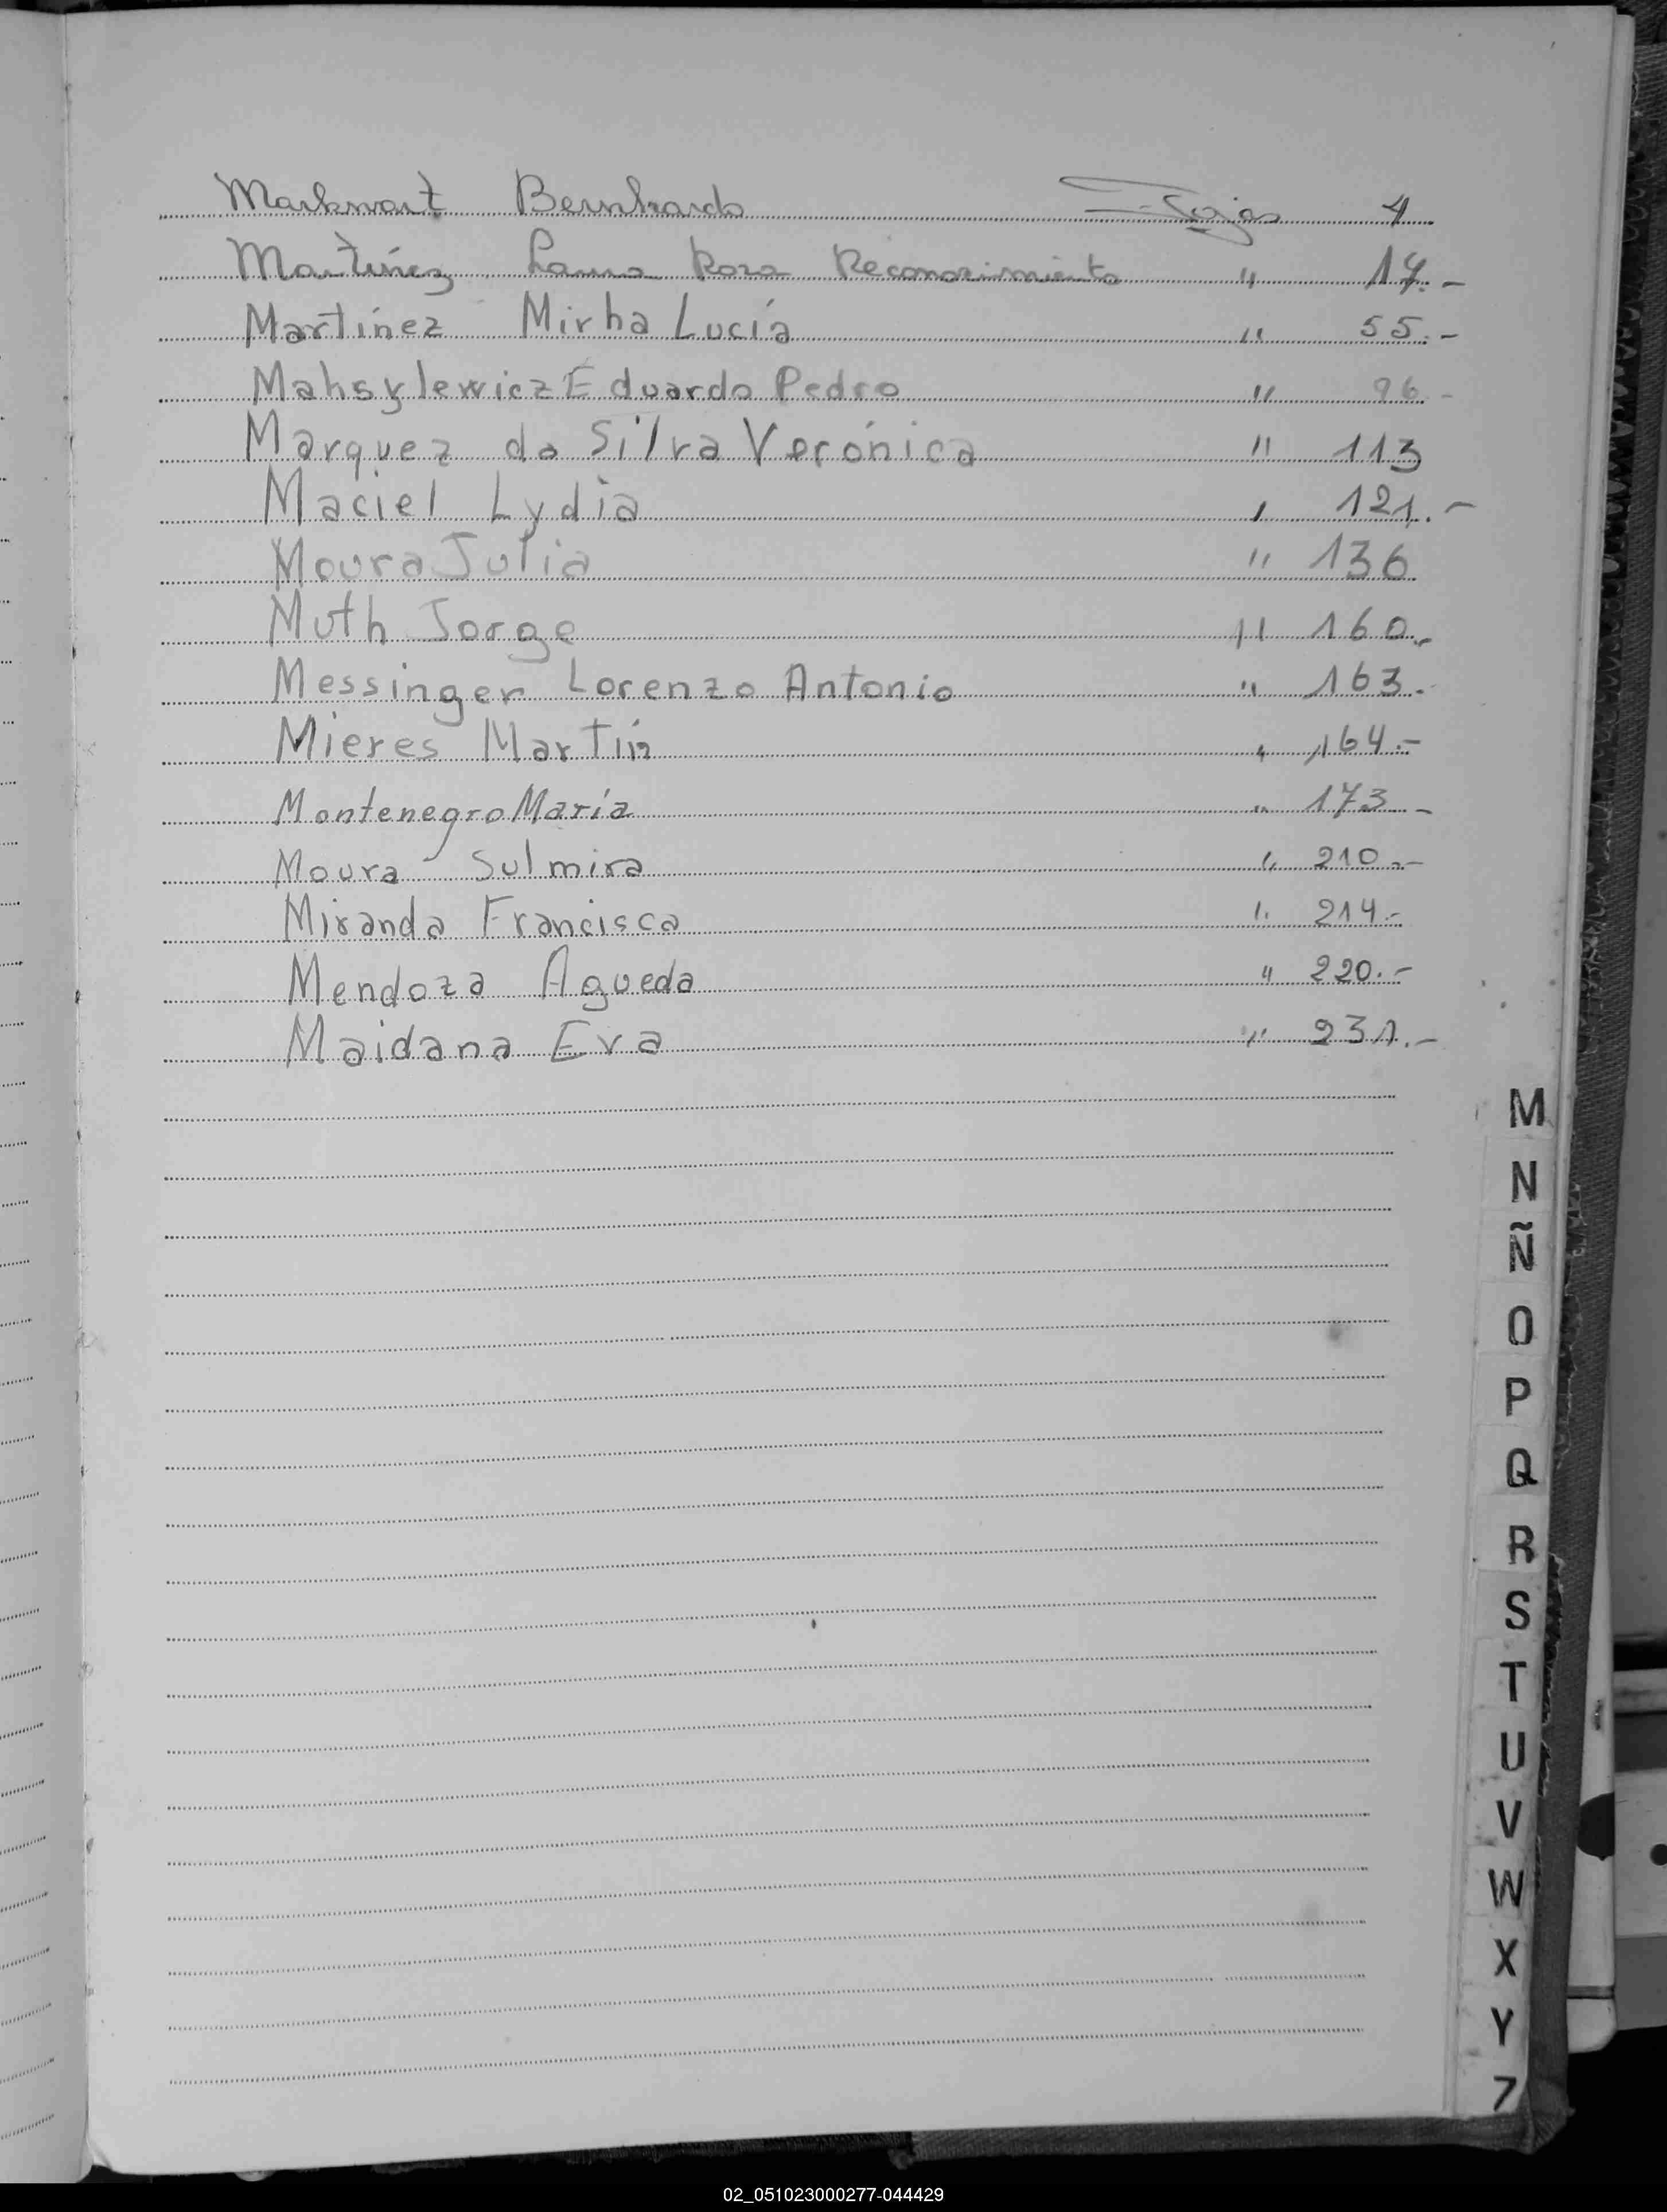 Markwart Bernhardo Fojas 4
Martínez Laura Rosa Reconocimiento " 17.-
Martínez Mirha Lucía " 55.-
Mahsylewicz Eduardo Pedro " 96.-
Marquez da Silva Verónica " 113
Maciel Lydia " 121.-
Moura Julia " 136
Muth Jorge " 160.-
Messinger Lorenzo Antonio " 163.-
Mieres Martín " 164.-
Montenegro María " 173.-
Moura Sulmira " 210.-
Miranda Francisca " 214.-
Mendoza Agueda " 220.-
Maidana Eva " 231.-
M
N
Ñ
O
P
Q
R
S
T
U
V
W
X
Y
Z
02_051023000277-044429